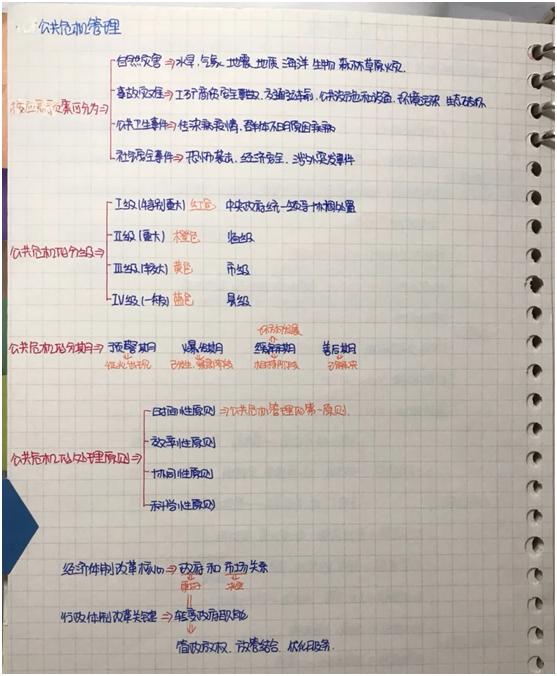 公共危机管理
自然灾害⇒水旱、气象、地震、地质、海洋、生物、森林草原火灾
按应急要素可分为⇒
事故灾难⇒工矿商贸安全事故、交通运输事故、公共设施和设备、环境污染、生态破坏
公共卫生事件⇒传染病疫情、群体不明原因疾病
社会安全事件⇒恐怖袭击、经济安全、涉外突发事件
公共危机的分级⇒
I级(特别重大) 红色 中央政府统一领导协调处置
II级(重大) 橙色 省级
III级(较大) 黄色 市级
IV级(一般) 蓝色 县级
公共危机的分期⇒预警期 爆发期 缓解期 善后期
相持阶段 已解决
公共危机的处理原则⇒
时间性原则⇒公共危机管理的第一原则
效率性原则
协同性原则
科学性原则
经济体制改革核心⇒政府和市场关系
决定
行政体制改革关键⇒转变政府职能
简政放权、放管结合、优化服务